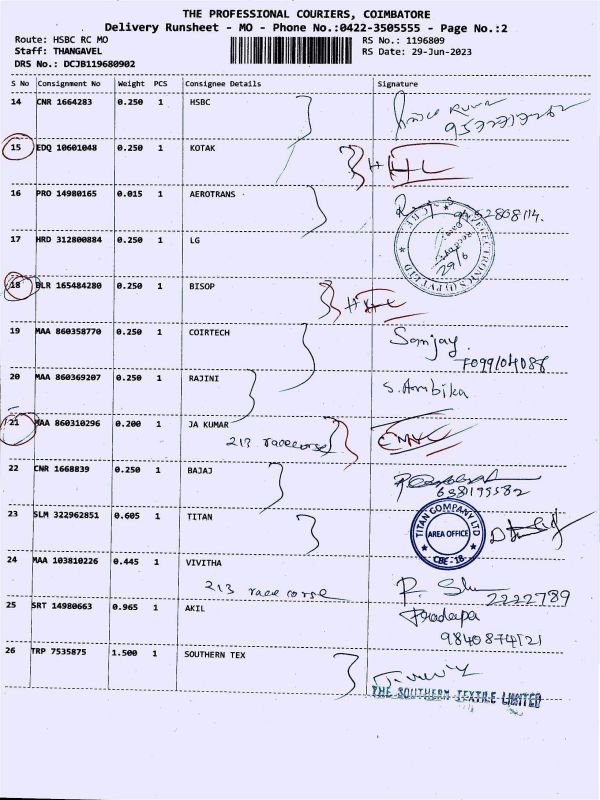 THE PROFESSIONAL COURIERS, COIMBATORE
Delivery Runsheet - MO - Phone No.:0422-3505555 - Page No.:2
Route: HSBC RC MO
Staff: THANGAVEL
DRS No.: DCJB119680902
RS No.: 1196809
RS Date: 29-Jun-2023
S No Consignment No Weight PCS Consignee Details Signature
14 CNR 1664283 0.250 1 HSBC
15 EDQ 10601048 0.250 1 KOTAK
16 PRO 14980165 0.015 1 AEROTRANS
17 HRD 312800884 0.250 1 LG
29/6
18 BLR 165484280 0.250 1 BISOP
19 MAA 860358770 0.250 1 COIRTECH Sanjay
7099104088
20 MAA 860369207 0.250 1 RAJINI S. Ambika
21 MAA 860310296 0.200 1 JA KUMAR
213 racecorse
22 CNR 1668839 0.250 1 BAJAJ
6381199582
23 SLM 322962851 0.605 1 TITAN
TITAN COMPANY LTD
AREA OFFICE
CBE - 18
24 MAA 103810226 0.445 1 VIVITHA
213 race corse
2222789
25 SRT 14980663 0.965 1 AKIL Pradeepa
9840874121
26 TRP 7535875 1.500 1 SOUTHERN TEX
THE SOUTHERN TEXTILE LIMITED